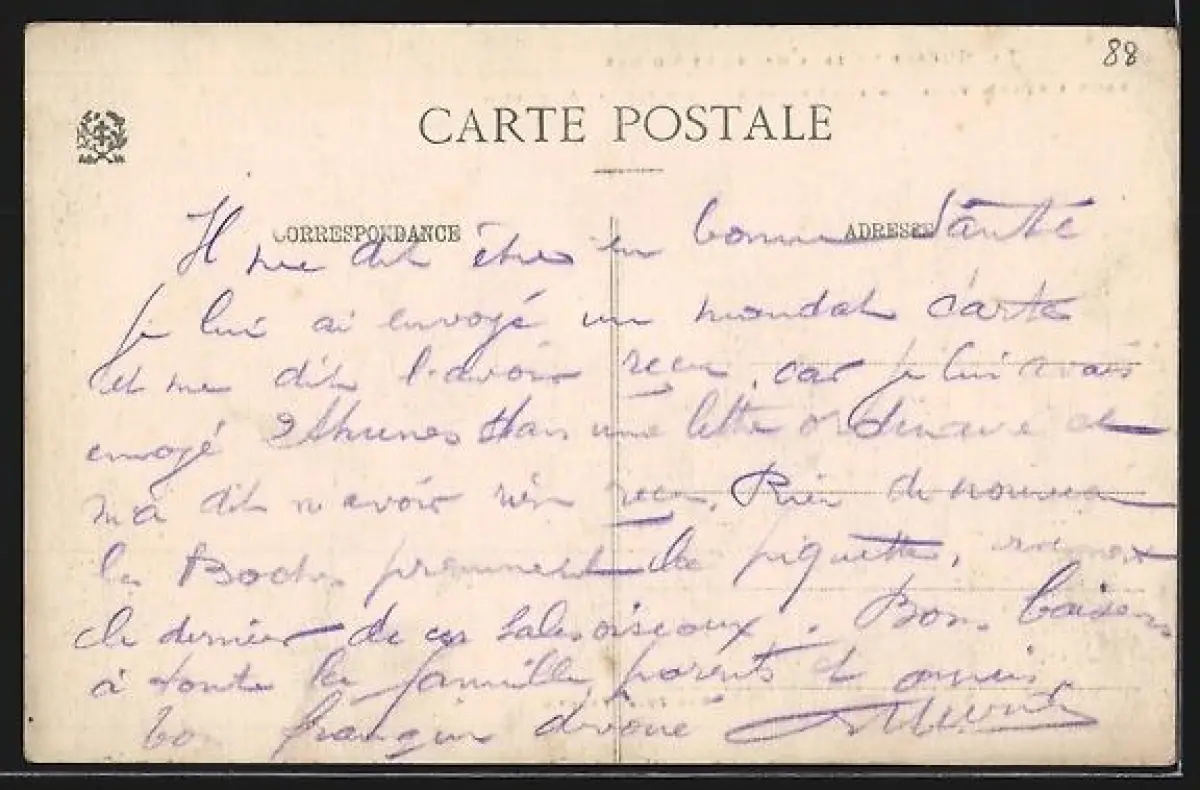 88
CARTE POSTALE
CORRESPONDANCE
ADRESSE
Il me dit être en bonne Santé
je lui ai envoyé un mandat carte
et me dit l'avoir reçu, car je lui avais
envoyé dans une lettre ordinaire et
m'a dit n'avoir rien reçu. Rien de nouveau
les Boches prennent la piquette,
le dernier de ces sales oiseaux. Bons baisers
à toute la famille, parents et amis
frangin dévoué